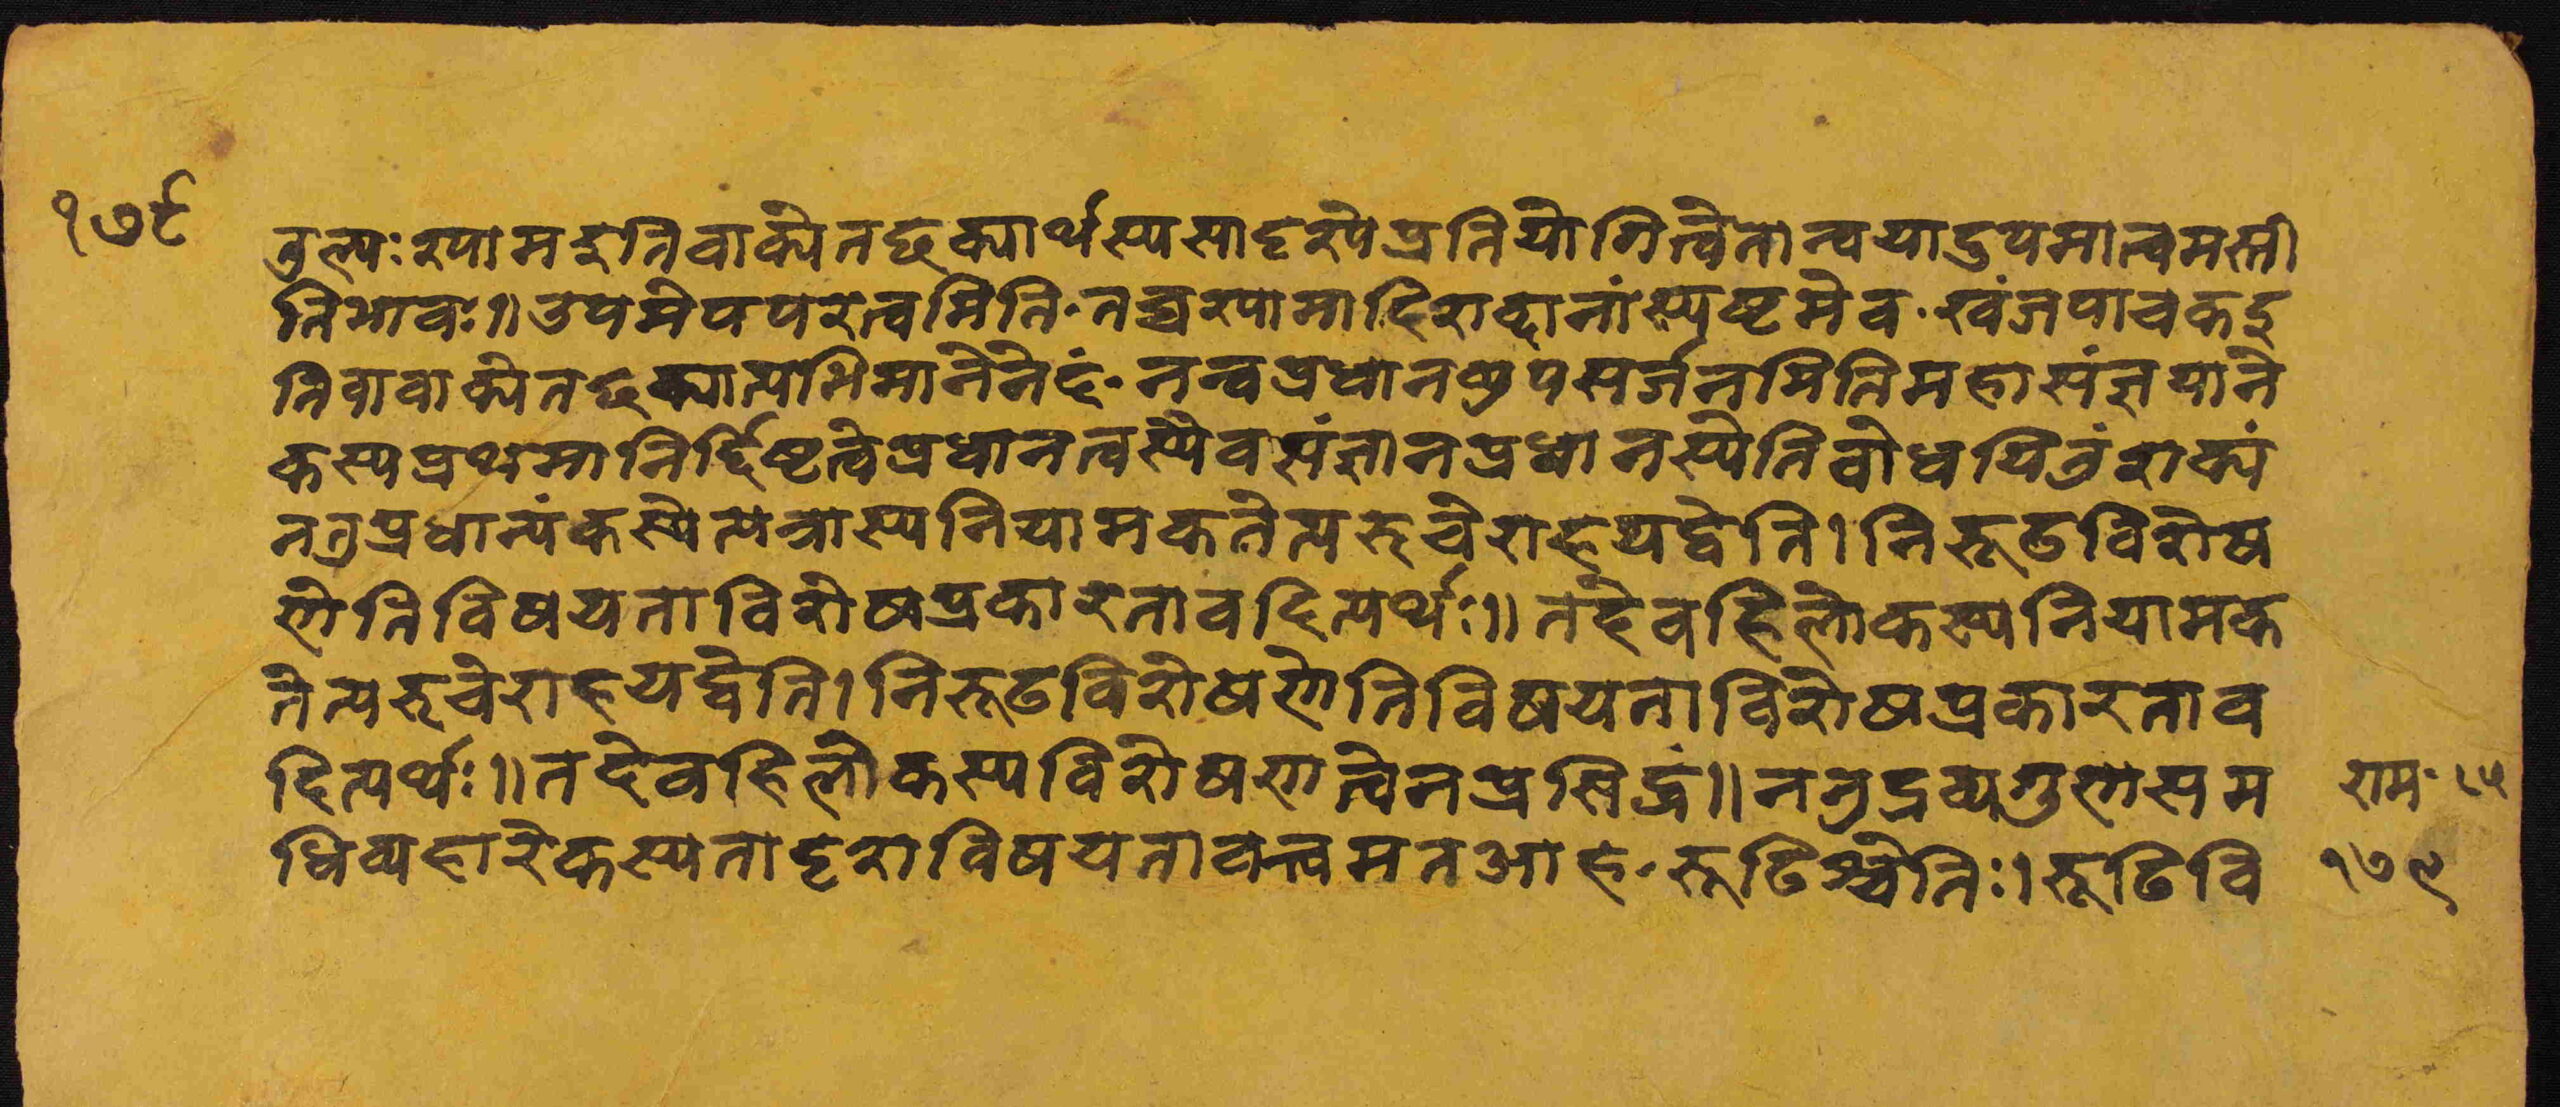 १७९
तुल्यः श्याम इति वाक्ये तच्छक्यार्थस्य सादृश्ये प्रतियोगित्वेनान्वयादुपमात्वमस्ती
ति भावः ॥ उपमेयपरत्वमिति · तच्च श्यामादिशब्दानां स्पष्टमेव · खंजपाचक इ
ति वा वाक्ये तच्छक्यात्यभिमानेनेदं · नन्वप्रधानमुपसर्जनमिति महासंज्ञयाने
कस्य प्रथमानिर्द्दिष्टत्वे प्रधानत्वस्यैव संज्ञा न प्रधानस्येति बोधयितुं शक्यं
न तु प्रधान्यं कस्येत्यत्रास्य नियामकतेत्यरुचेराह यद्वेति । निरूढविशेष
णेति विषयताविशेषप्रकारतावदित्यर्थः ॥ तदेव हि लोकस्य नियामक
तेत्यरुचेराह यद्वेति । निरूढविशेषणेति विषयताविशेषप्रकारताव
दित्यर्थः ॥ तदेव हि लोकस्य विशेषणत्वेन प्रसिद्धं ॥ ननु द्रव्यगुणसम
भिव्यहारे कस्य तादृशविषयतावत्त्वमत आह · रूढिश्चेतिः । रूढिवि
राम·
१७९